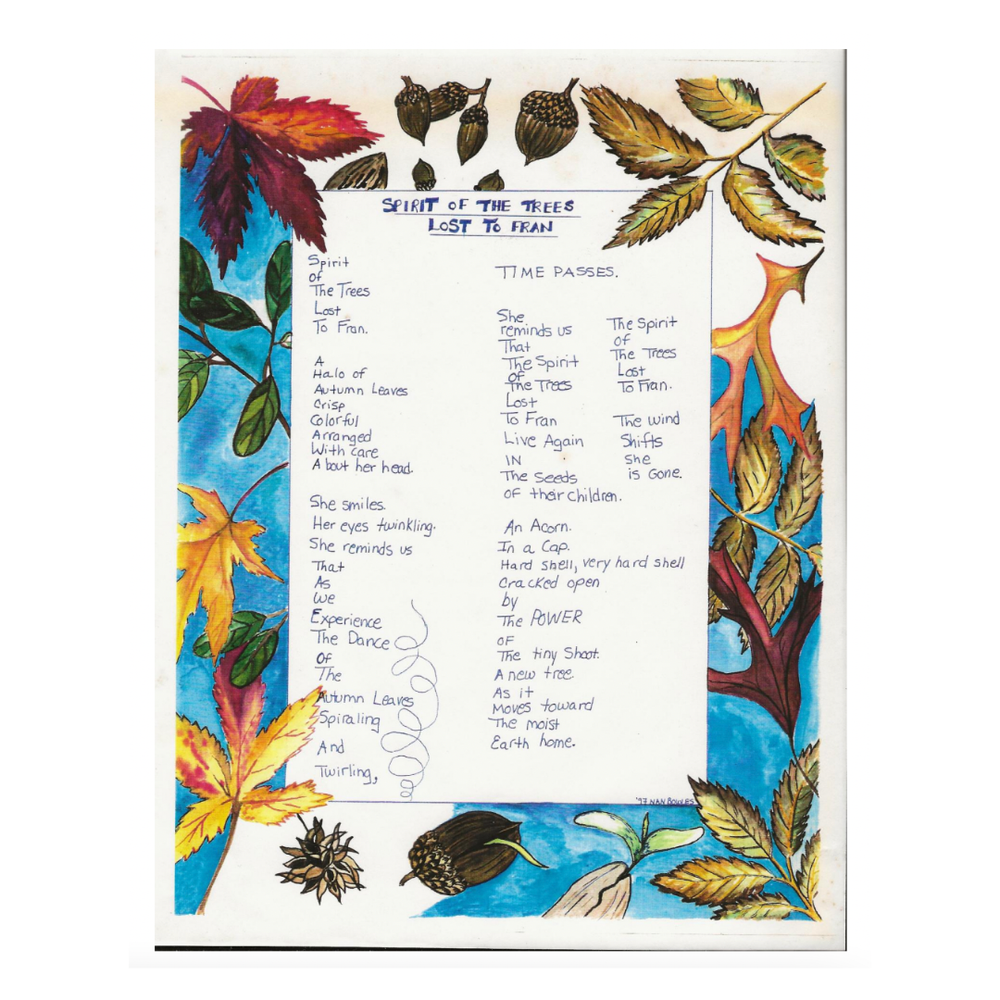 SPIRIT OF THE TREES
LOST TO FRAN
Spirit
of
The Trees
Lost
To Fran.
A
Halo of
Autumn Leaves
Crisp
Colorful
Arranged
With care
About her head.
She smiles.
Her eyes twinkling.
She reminds us
That
As
We
Experience
The Dance
Of
The
Autumn Leaves
Spiraling
And
Twirling,
TIME PASSES.
She
reminds us
That
The Spirit
of
The Trees
Lost
To Fran
Live Again
IN
The Seeds
of their children.
An Acorn.
In a Cap.
Hard shell, very hard shell
Cracked open
by
The POWER
OF
The tiny Shoot.
A new tree.
As it
Moves toward
The moist
Earth home.
The Spirit
of
The Trees
Lost
To Fran.
The wind
Shifts
She
is Gone.
'97 NAN BOWLES